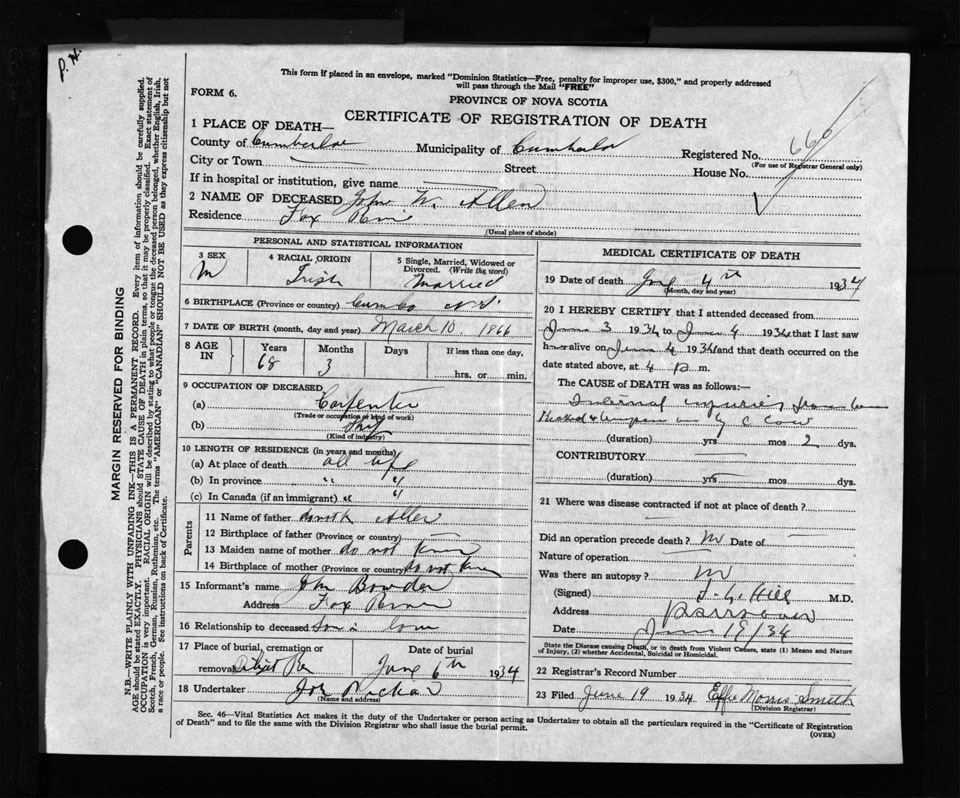 P. H.
This form if placed in an envelope, marked "Dominion Statistics—Free, penalty for improper use, $300," and properly addressed
will pass through the Mail "FREE"
FORM 6.
PROVINCE OF NOVA SCOTIA
CERTIFICATE OF REGISTRATION OF DEATH
1 PLACE OF DEATH—
County of Municipality of Registered No. 660
(For use of Registrar General only)
City or Town Street House No.
If in hospital or institution, give name
2 NAME OF DECEASED John W. Allen
Residence Fox
(Usual place of abode)
PERSONAL AND STATISTICAL INFORMATION
3 SEX M
4 RACIAL ORIGIN Irish
5 Single, Married, Widowed or Divorced. (Write the word) Married
6 BIRTHPLACE (Province or country) N.S.
7 DATE OF BIRTH (month, day and year) March 10. 1866
8 AGE IN Years Months Days If less than one day,
68 3 hrs. or min.
9 OCCUPATION OF DECEASED
(a) Carpenter
(Trade or occupation or kind of work)
(b) Ship
(Kind of industry)
10 LENGTH OF RESIDENCE (in years and months)
(a) At place of death all life
(b) In province " "
(c) In Canada (if an immigrant) " "
Parents
11 Name of father Allen
12 Birthplace of father (Province or country)
13 Maiden name of mother do not know
14 Birthplace of mother (Province or country) do not know
15 Informant's name John Bowden
Address Fox River
16 Relationship to deceased Son in law
17 Place of burial, cremation or removal Date of burial
June 6th 1934
18 Undertaker
(Name and address)
MEDICAL CERTIFICATE OF DEATH
19 Date of death 4th 1934
(Month, day and year)
20 I HEREBY CERTIFY that I attended deceased from
June 3 1934 to June 4 1934 that I last saw
him alive on June 4 1934 and that death occurred on
date stated above, at 4 p. m.
The CAUSE of DEATH was as follows:—
Internal injuries from
by a cow
(duration) yrs mos 2 dys.
CONTRIBUTORY
(duration) yrs mos dys.
21 Where was disease contracted if not at place of death?
Did an operation precede death? no Date of
Nature of operation
Was there an autopsy? no
(Signed) Hill M.D.
Address Parrsboro
Date June 19/34
State the Disease causing Death, or in death from Violent Causes, state (1) Means and Nature
of Injury, (2) whether Accidental, Suicidal or Homicidal.
22 Registrar's Record Number
23 Filed June 19 1934 Effie Morris Smith
(Division Registrar)
Sec. 46—Vital Statistics Act makes it the duty of the Undertaker or person acting as Undertaker to obtain all the particulars required in the "Certificate of Registration
of Death" and to file the same with the Division Registrar who shall issue the burial permit.
(OVER)
MARGIN RESERVED FOR BINDING
N.B.—WRITE PLAINLY WITH UNFADING INK—THIS IS A PERMANENT RECORD. Every item of information should be carefully supplied.
AGE should be stated EXACTLY. PHYSICIANS should STATE CAUSE OF DEATH in plain terms, so that it may be properly classified. Exact statement of
OCCUPATION is very important. RACIAL ORIGIN will be described by stating to what people or tongue the deceased person belonged, whether English, Irish,
Scotch, French, German, Russian, Ruthenian, etc. The terms "AMERICAN" or "CANADIAN" SHOULD NOT BE USED as they express citizenship but not
a race or people. See instructions on back of Certificate.